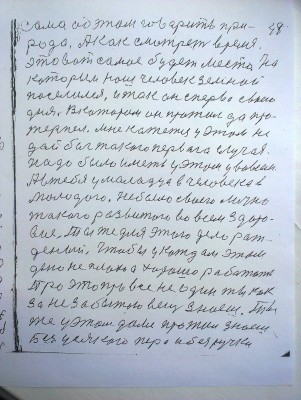 сама об этом говорить при- 38
рода. А как смотрет время.
Это вот самое будет место. На
котором наш человек земной
поселился, и так он сперво свово
дня. В котором он прожил да про-
терпел. Мне кажется у этом не
дай бы такого первага случая.
Надо было иметь у этом у во всем.
А в тебя у молодца в человека в
молодого. Небыло своего лично
такого развитого во всем здоро-
вие. Ты же для этого дело раж-
деный. Чтобы у каждом этом
дено не плоха а хорошо работат
Про это про все не один ты как
за не забытою вещ знаем. Ты
же у этом доле прожил знаем
Без усякого перо и без ручки